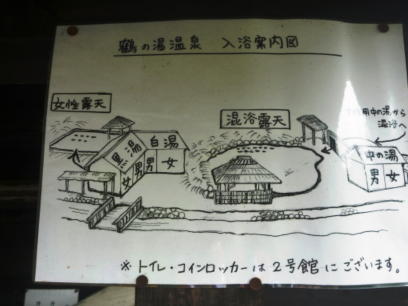 鶴の湯温泉 入浴案内図
女性露天
混浴露天
用中の湯から
混浴へ
黒湯
白湯
女
男
男
女
中の湯
男
女
※トイレ・コインロッカーは2号館にございます。